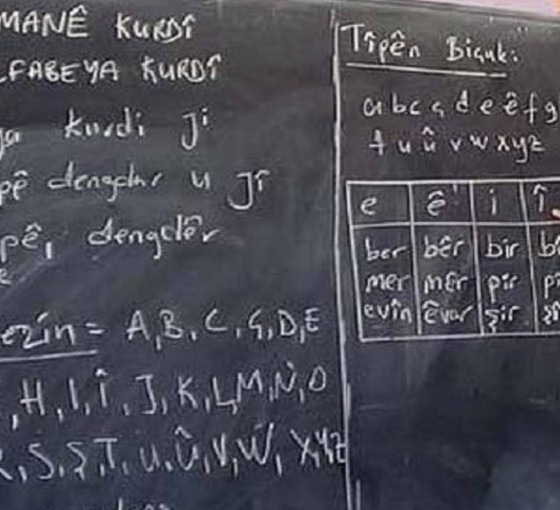 MANÊ KURDÎ
LFABEYA KURDÎ
ya kurdi ji
pê dengdar u jî
pê, dengdêr
e
ezin = A, B, C, Ç, D, E
, H, I, Î, J, K, L, M, N, O
R, S, Ş, T, U, Û, V, W, X, Y, Z
Tîpên Biçuk:
a b c ç d e ê f g
t u û v w x y z
e ê i î
ber bêr bir bî
mer mêr pir pî
evîn êvar şir şî